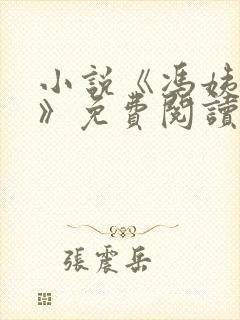 小說《馮姨
》免費閱讀
張震岳